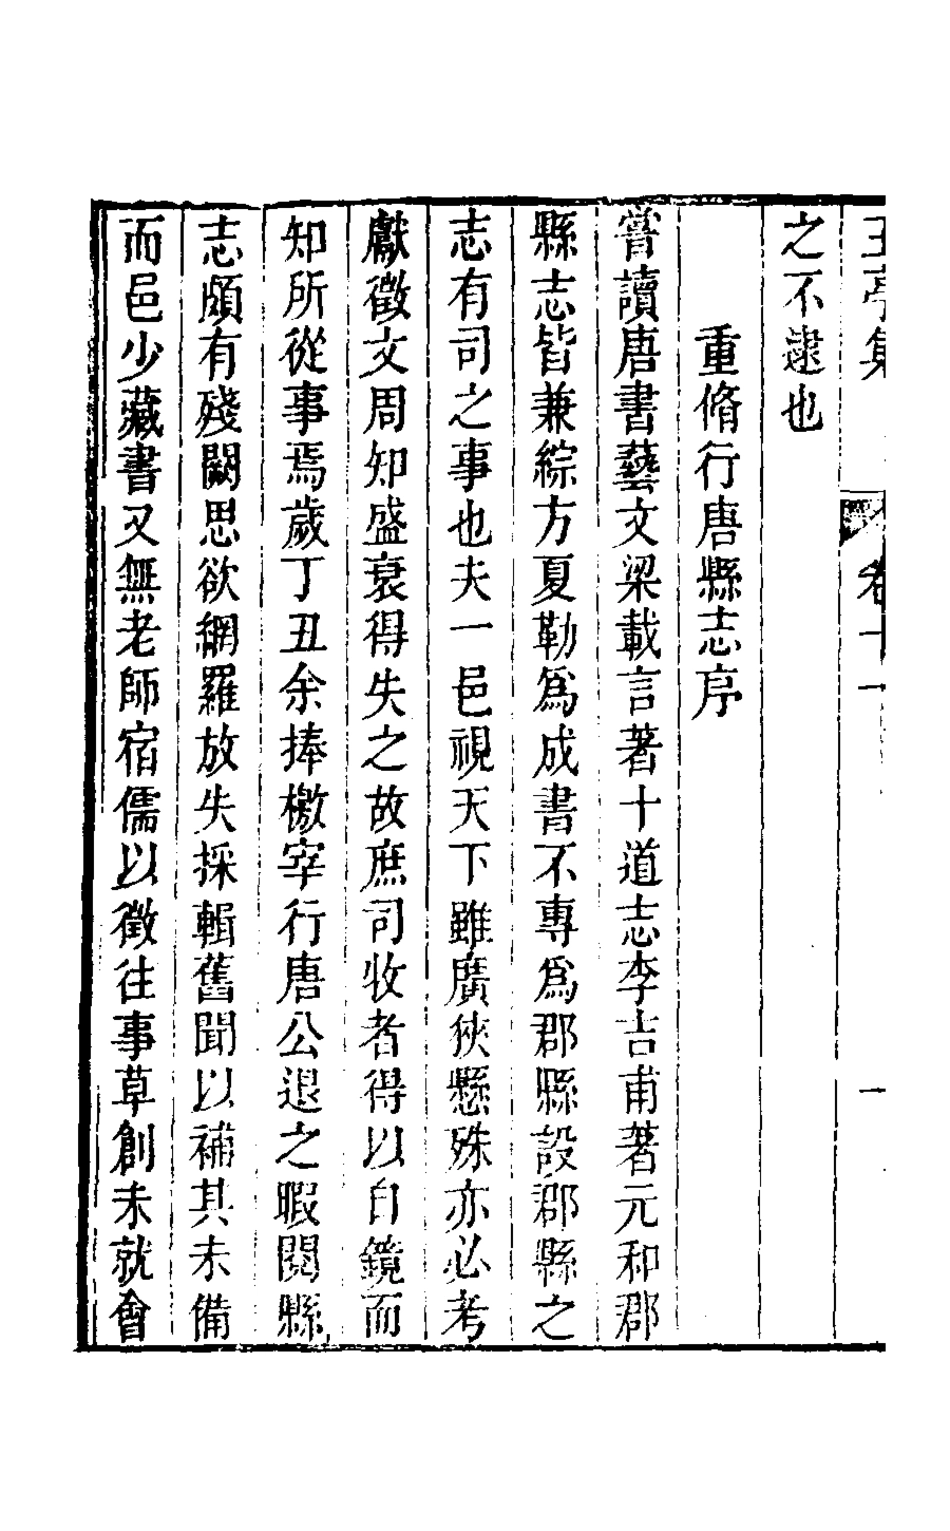 玉亭集 卷十一 一
之不逮也
重脩行唐縣志序
嘗讀唐書藝文梁載言著十道志李吉甫著元和郡
縣志皆兼綜方夏勒爲成書不專爲郡縣設郡縣之
志有司之事也夫一邑視天下雖廣狹懸殊亦必考
獻徵文周知盛衰得失之故庶司牧者得以自鏡而
知所從事焉歲丁丑余捧檄宰行唐公退之暇閱縣
志頗有殘闕思欲網羅放失採輯舊聞以補其未備
而邑少藏書又無老師宿儒以徵往事草創未就會